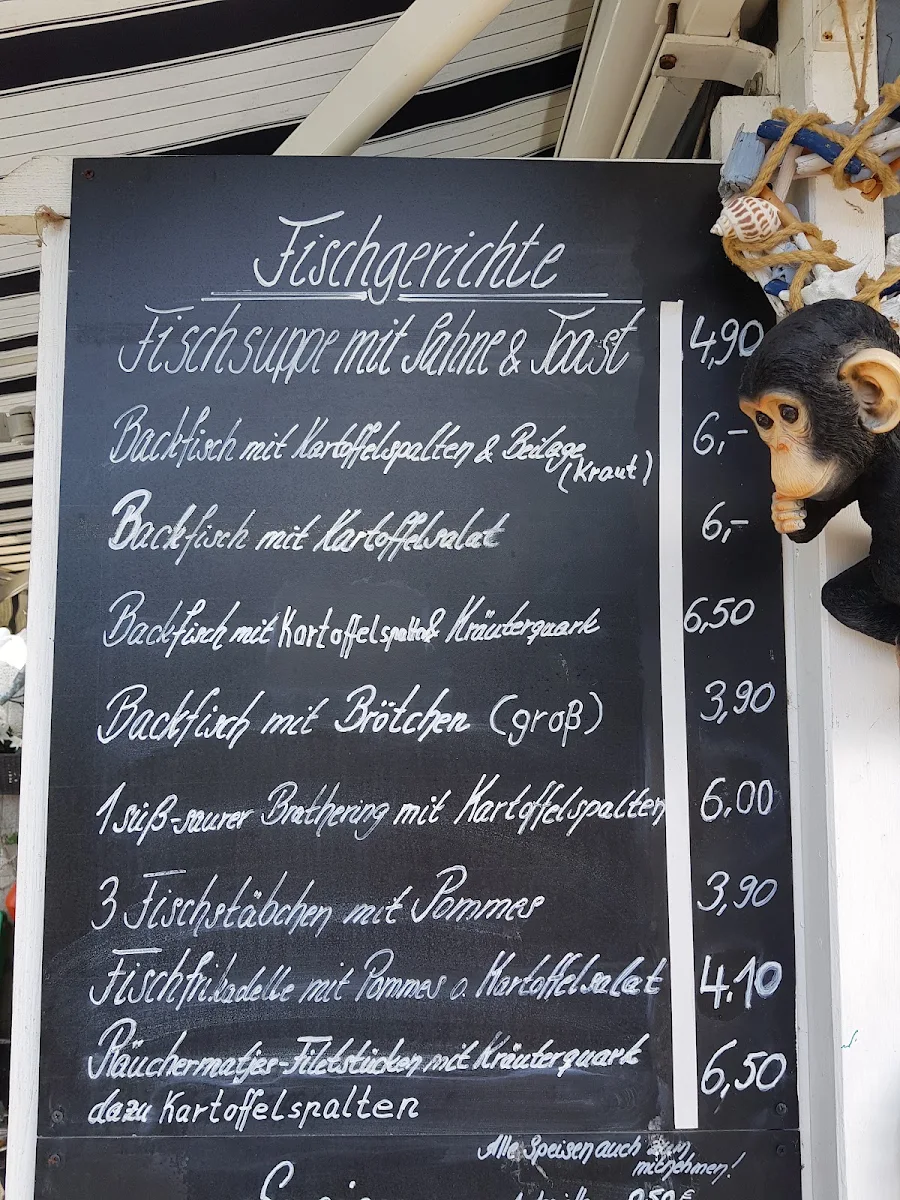 Fischgerichte
Fischsuppe mit Sahne & Toast 4,90
Backfisch mit Kartoffelspalten & Beilage 6,-
(Kraut)
Backfisch mit Kartoffelsalat 6,-
Backfisch mit Kartoffelspalten & Kräuterquark 6,50
Backfisch mit Brötchen (groß) 3,90
1 süß-saurer Brathering mit Kartoffelspalten 6.00
3 Fischstäbchen mit Pommes 3,90
Fischfrikadelle mit Pommes o. Kartoffelsalat 4.10
Räuchermatjes-Filetstücken mit Kräuterquark 6,50
dazu Kartoffelspalten
Alle Speisen auch zum
mitnehmen!